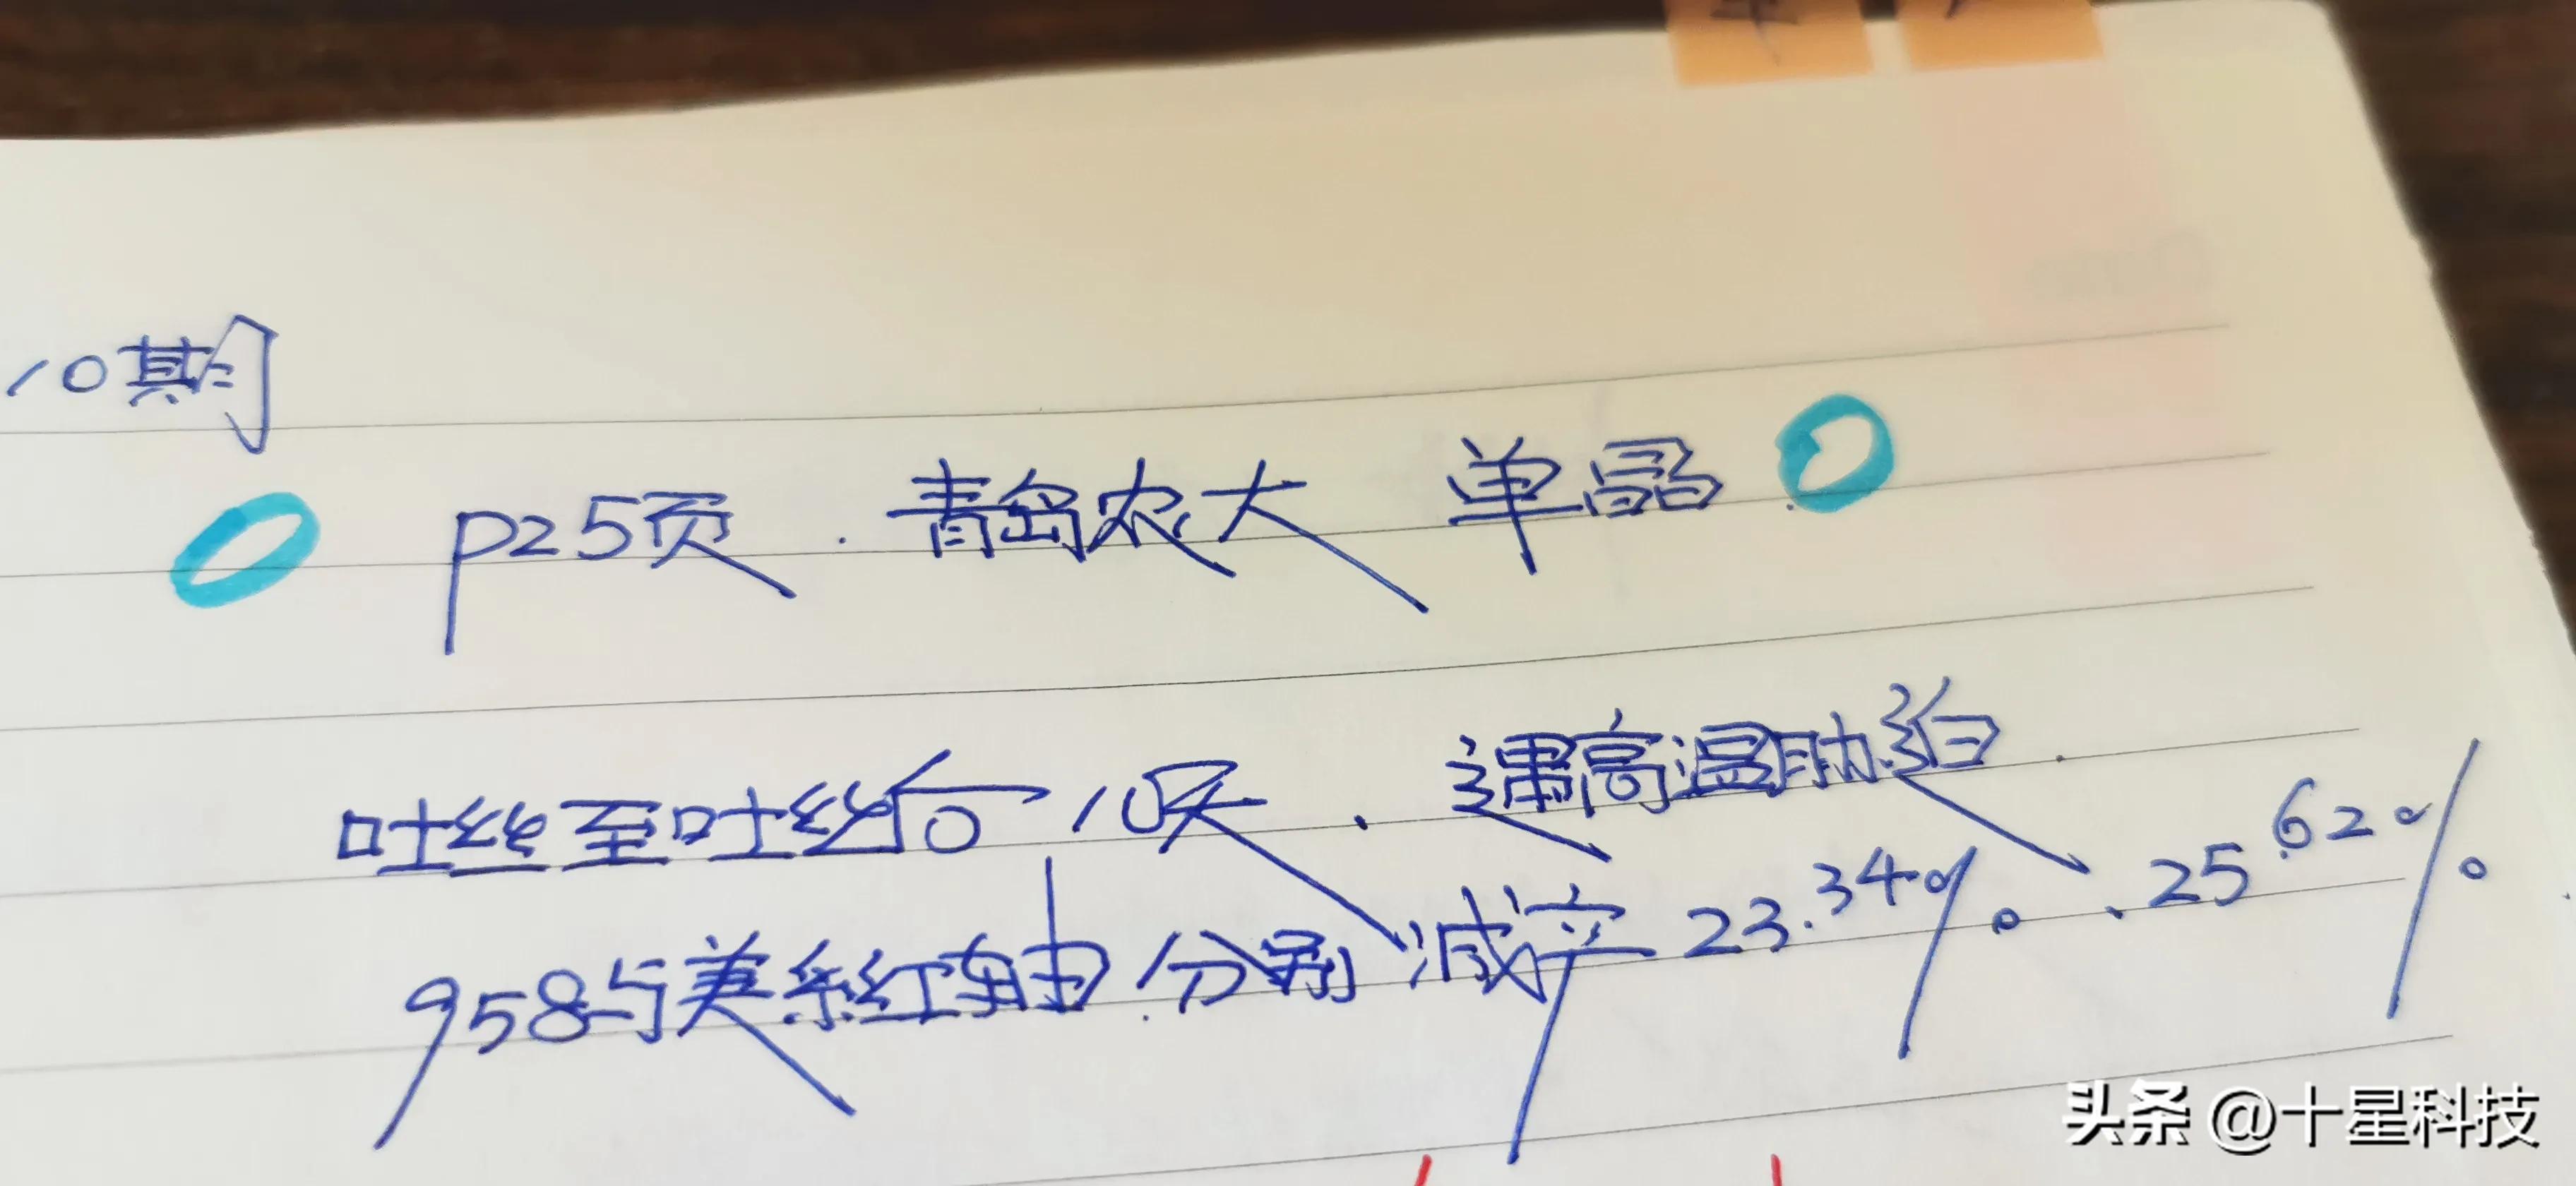 10期
P25页.青岛农大 单晶
吐丝至吐丝后10天.遇高温胁迫.
958与美系红轴分别减产23.34%.25.62%
头条 @十星科技